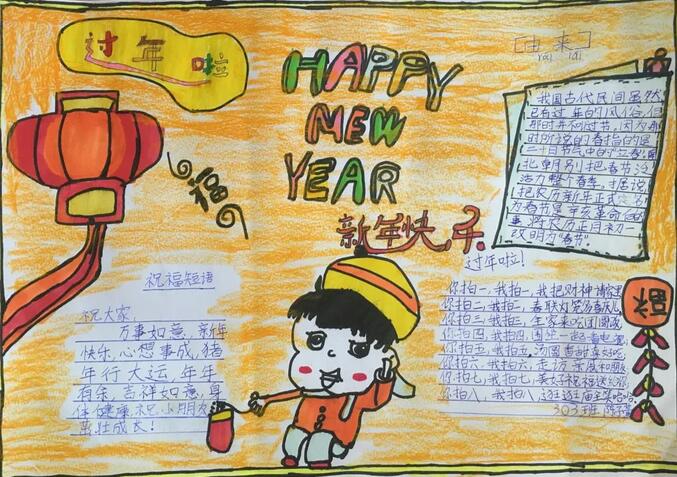 过年啦
HAPPY
NEW
YEAR
新年快乐
福
[由来]
我国古代民间虽然
已有过年的风俗,但
那时并不叫过节,因为那
时所说的春指的是
二十四节气中的"立春",南
北朝
把春节
整个春季,据说
把农历新年正式
为春节是辛亥革命后的
事
农历正月初一
改明为"春节".
祝福短语
祝大家,
万事如意,新年
快乐,心想事成,猪
年行大运,年年
有余,吉祥如意,身
体健康祝小朋友
茁壮成长!
过年啦!
你拍一,我拍一,我把财神请家里
你拍二,我拍二,春联灯笼
你拍三,我拍三,全家来吃团圆
你拍四,我拍四,围坐一起看电视
你拍五,我拍五,汤圆香甜真好吃
你拍六,我拍六,走访亲戚和朋
你拍七,我拍七,美好祝福送给你
你拍八,我拍八,逛逛庙会笑哈哈
303班
福